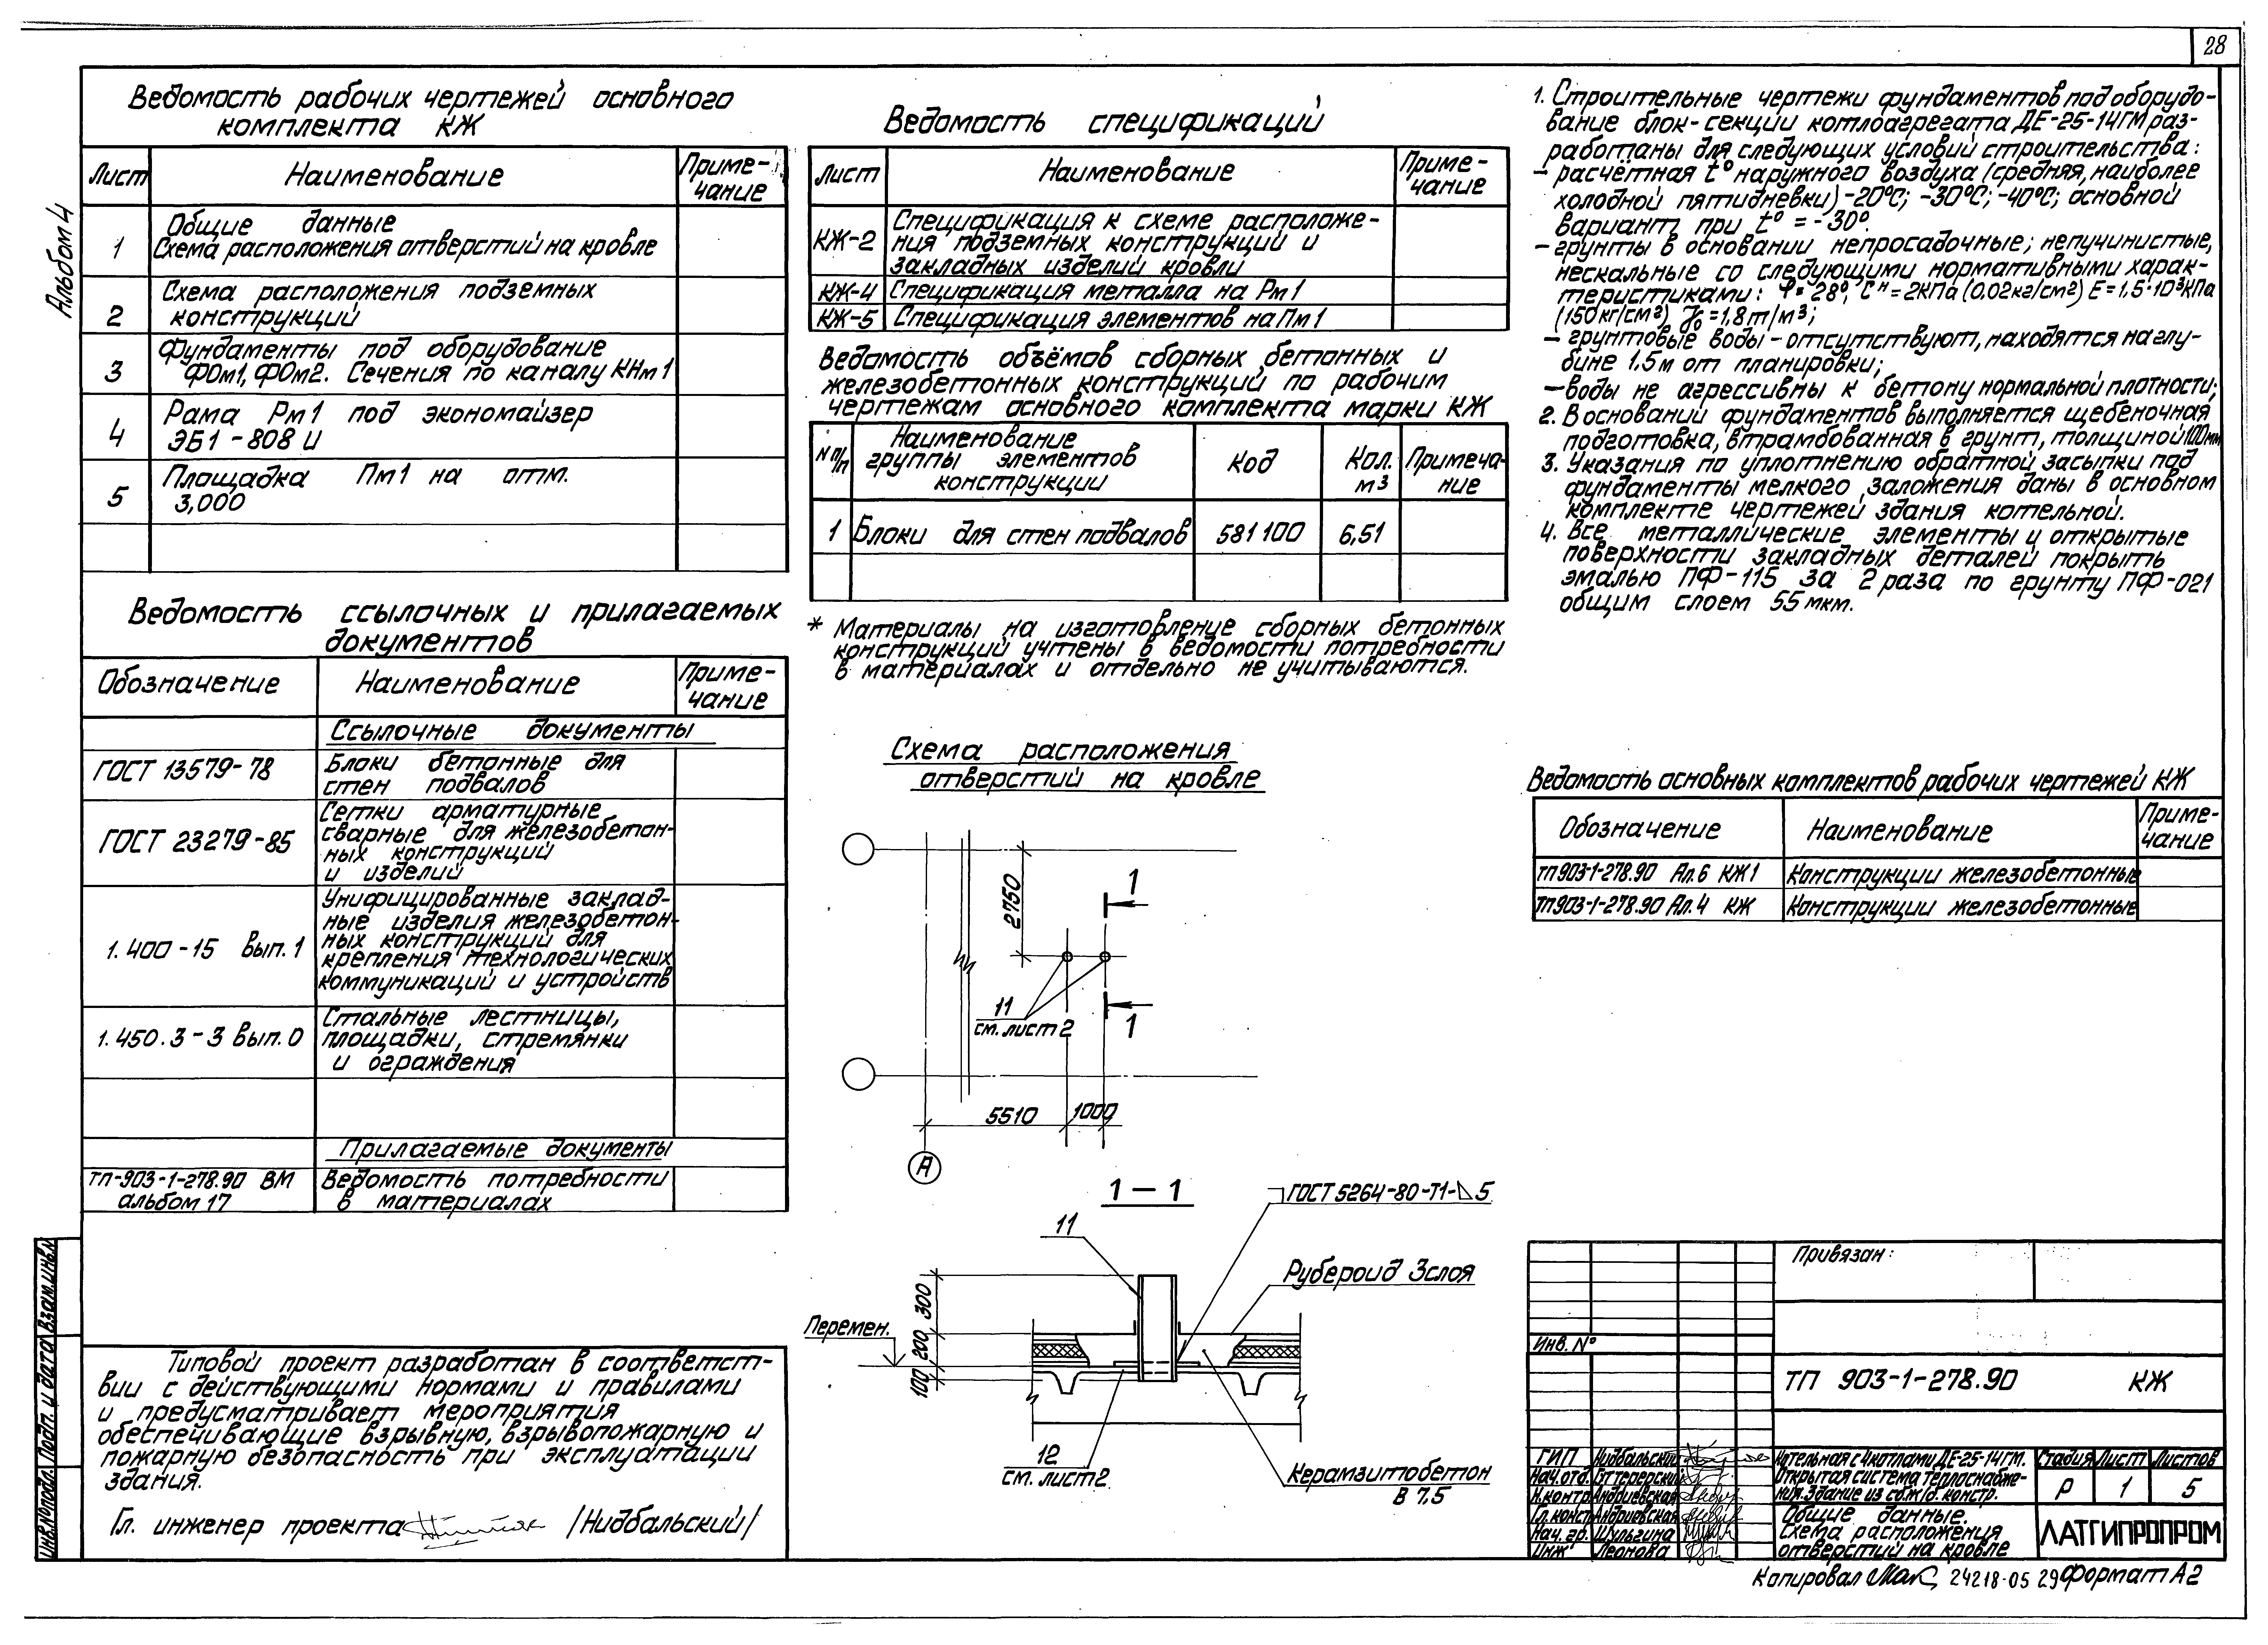 28
Альбом 4
Ведомость рабочих чертежей основного
комплекта КЖ
Лист Наименование Приме-
чание
1 Общие данные
Схема расположения отверстий на кровле
2 Схема расположения подземных
конструкций
3 Фундаменты под оборудование
ФОм1, ФОм2. Сечения по каналу КНм1
4 Рама Рм1 под экономайзер
ЭБ1-808 И
5 Площадка Пм1 на отм.
3,000
Ведомость ссылочных и прилагаемых
документов
Обозначение Наименование Приме-
чание
Ссылочные документы
ГОСТ 13579-78 Блоки бетонные для
стен подвалов
ГОСТ 23279-85 Сетки арматурные
сварные для железобетон-
ных конструкций
и изделий
1.400-15 Вып.1 Унифицированные заклад-
ные изделия железобетон-
ных конструкций для
крепления технологических
коммуникаций и устройств
1.450.3-3 Вып.0 Стальные лестницы,
площадки, стремянки
и ограждения
Прилагаемые документы
ТП-903-1-278.90 ВМ
альбом 17
Ведомость потребности
в материалах
Типовой проект разработан в соответст-
вии с действующими нормами и правилами
и предусматривает мероприятия
обеспечивающие взрывную, взрывопожарную и
пожарную безопасность при эксплуатации
здания.
Гл. инженер проекта /Нидбальский/
Инв.№подл. Подп. и дата Взам.инв.№
Ведомость спецификаций
Лист Наименование Приме-
чание
КЖ-2 Спецификация к схеме расположе-
ния подземных конструкций и
закладных изделий кровли
КЖ-4 Спецификация металла на Рм1
КЖ-5 Спецификация элементов на Пм1
Ведомость объёмов сборных бетонных и
железобетонных конструкций по рабочим
чертежам основного комплекта марки КЖ
N п/п Наименование
группы элементов
конструкции
Код Кол.
м3
Примеча-
ние
1 Блоки для стен подвалов 581100 6,51
* Материалы на изготовление сборных бетонных
конструкций учтены в ведомости потребности
в материалах и отдельно не учитываются.
Схема расположения
отверстий на кровле
2750
1
11
см. лист 2
1
5510 1000
А
1-1
ГОСТ 5264-80-Т1-⊿5
11
Рубероид 3слоя
300
200
100
Перемен.
12
см. лист 2
Керамзитобетон
В 7,5
1. Строительные чертежи фундаментов под оборудо-
вание блок-секции котлоагрегата ДЕ-25-14ГМ раз-
работаны для следующих условий строительства:
- расчётная t° наружного воздуха (средняя, наиболее
холодной пятидневки) -20°С; -30°С; -40°С; основной
вариант при t° = -30°.
- грунты в основании непросадочные; непучинистые,
нескальные со следующими нормативными харак-
теристиками: φ = 28°, Cн = 2КПа (0,02кг/см²) E = 1,5·10³КПа
(150кг/см²) γ₀ = 1,8т/м³;
- грунтовые воды - отсутствуют, находятся на глу-
бине 1.5м от планировки;
- воды не агрессивны к бетону нормальной плотности;
2. В основании фундаментов выполняется щебеночная
подготовка, втрамбованная в грунт, толщиной 100мм
3. Указания по уплотнению обратной засыпки под
фундаменты мелкого заложения даны в основном
комплекте чертежей здания котельной.
4. Все металлические элементы и открытые
поверхности закладных деталей покрыть
эмалью ПФ-115 за 2 раза по грунту ПФ-021
общим слоем 55мкм.
Ведомость основных комплектов рабочих чертежей КЖ
Обозначение Наименование Приме-
чание
ТП903-1-278.90 Ал.6 КЖ1 Конструкции железобетонные
ТП903-1-278.90 Ал.4 КЖ Конструкции железобетонные
Привязан:
Инв. №
ТП 903-1-278.90 КЖ
ГИП Нидбальский
Нач.отд.
Н.контр Андриевская
Гл.конст Андриевская
Нач. гр. Шульгина
Инж Леонова
Котельная с 4 котлами ДЕ-25-14ГМ.
Открытая система теплоснабже-
ния.Здание из сб.ж/б. констр.
Стадия Лист Листов
Р 1 5
Общие данные.
Схема расположения
отверстий на кровле
ЛАТГИПРОПРОМ
Копировал 24218-05 29 Формат А2